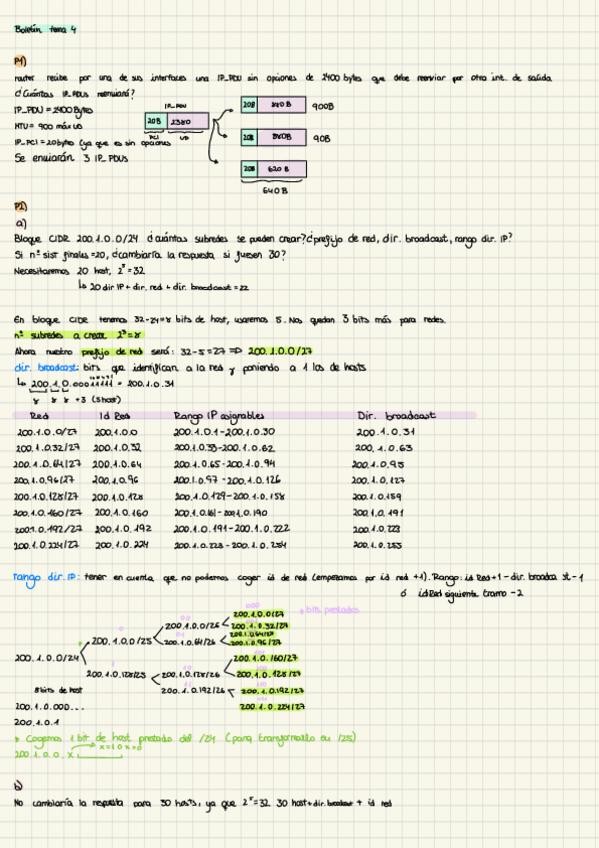 Boletín tema 4
P1)
router recibe por una de sus interfaces una IP_PDU sin opciones de 2400 bytes que debe reenviar por otra int. de salida
¿Cuántas IP_PDUs reenviará?
IP_PDU = 2400 Bytes
MTU = 900 máx UD
IP_PCI = 20 bytes (ya que es sin opciones
Se enviarán 3 IP_PDUs
IP_PDU
20B 2380
PCI UD
20B 880B 900B
20B 880B 90B
20B 620B
640B
P2)
a)
Bloque CIDR 200.1.0.0/24 ¿cuántas subredes se pueden crear? ¿prefijo de red, dir. broadcast, rango dir. IP?
Si nº sist finales = 20, ¿cambiaría la respuesta si fuesen 30?
Necesitaremos 20 host, 2⁵ = 32
↳ 20 dir IP + dir. red + dir. broadcast = 22
En bloque CIDR tenemos 32-24=8 bits de host, usaremos 5. Nos quedan 3 bits más para redes.
nº subredes a crear 2³ = 8
Ahora nuestro prefijo de red será: 32-5=27 ⇒ 200.1.0.0/27
dir. broadcast: bits que identifican a la red y poniendo a 1 los de hosts
↳ 200.1.0.00011111 = 200.1.0.31
8 8 8 +3 (5 host)
Red Id Red Rango IP asignables Dir. broadcast
200.1.0.0/27 200.1.0.0 200.1.0.1-200.1.0.30 200.1.0.31
200.1.0.32/27 200.1.0.32 200.1.0.33-200.1.0.62 200.1.0.63
200.1.0.64/27 200.1.0.64 200.1.0.65-200.1.0.94 200.1.0.95
200.1.0.96/27 200.1.0.96 200.1.0.97-200.1.0.126 200.1.0.127
200.1.0.128/27 200.1.0.128 200.1.0.129-200.1.0.158 200.1.0.159
200.1.0.160/27 200.1.0.160 200.1.0.161-200.1.0.190 200.1.0.191
200.1.0.192/27 200.1.0.192 200.1.0.191-200.1.0.222 200.1.0.223
200.1.0.224/27 200.1.0.224 200.1.0.223-200.1.0.254 200.1.0.255
rango dir. IP: tener en cuenta que no podemos coger id de red (empezamos por id red +1). Rango: id Red+1 - dir. broadca st-1
ó idRed siguiente tramo -2
* bits prestados
200.1.0.0/27
200.1.0.0/26 200.1.0.32/27
200.1.0.0/25 200.1.0.64/27
200.1.0.64/26 200.1.0.96/27
200.1.0.0/24 200.1.0.160/27
200.1.0.128/25 200.1.0.128/26 200.1.0.128/27
8 bits de host 200.1.0.192/26 200.1.0.192/27
200.1.0.000... 200.1.0.224/27
200.1.0.1
* Cogemos 1 bit de host prestado del /24 (para transformarlo en /25)
x=1 o x=0
200.1.0.0.x
b)
No cambiaría la respuesta para 30 hosts, ya que 2⁵=32 30 host + dir. broadcast + id red